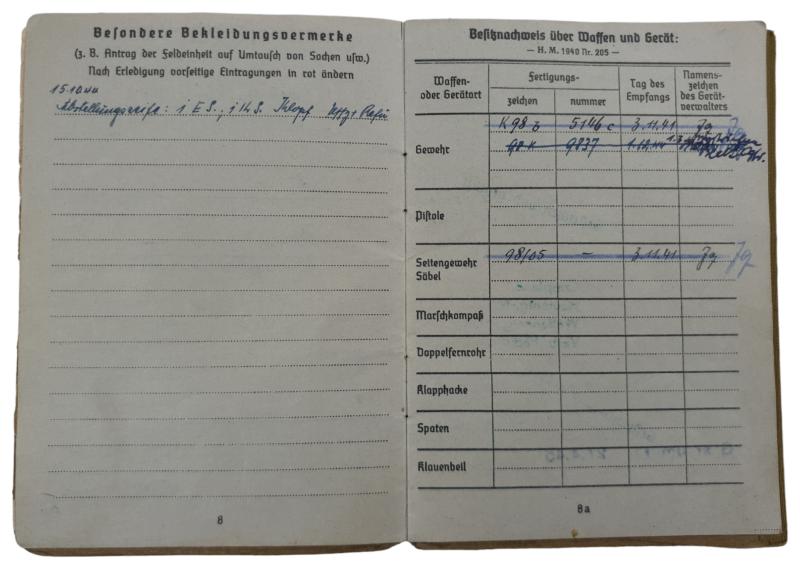 Besondere Bekleidungsvermerke
(z. B. Antrag der Feldeinheit auf Umtausch von Sachen usw.)
Nach Erledigung vorseitige Eintragungen in rot ändern
15.10.44
8
Besitznachweis über Waffen und Gerät:
— H. M. 1940 Nr. 205 —
Waffen- oder Gerätart
Fertigungs-
zeichen
nummer
Tag des Empfangs
Namens- zeichen des Gerät- verwalters
Gewehr
K 98 5146 c 3.11.41 Jg Jg
98 K 9837 1.12.44
Pistole
Seitengewehr 98/05 – 3.11.41 Jg Jg
Säbel
Marschkompaß
Doppelfernrohr
Klapphacke
Spaten
Klauenbeil
8a